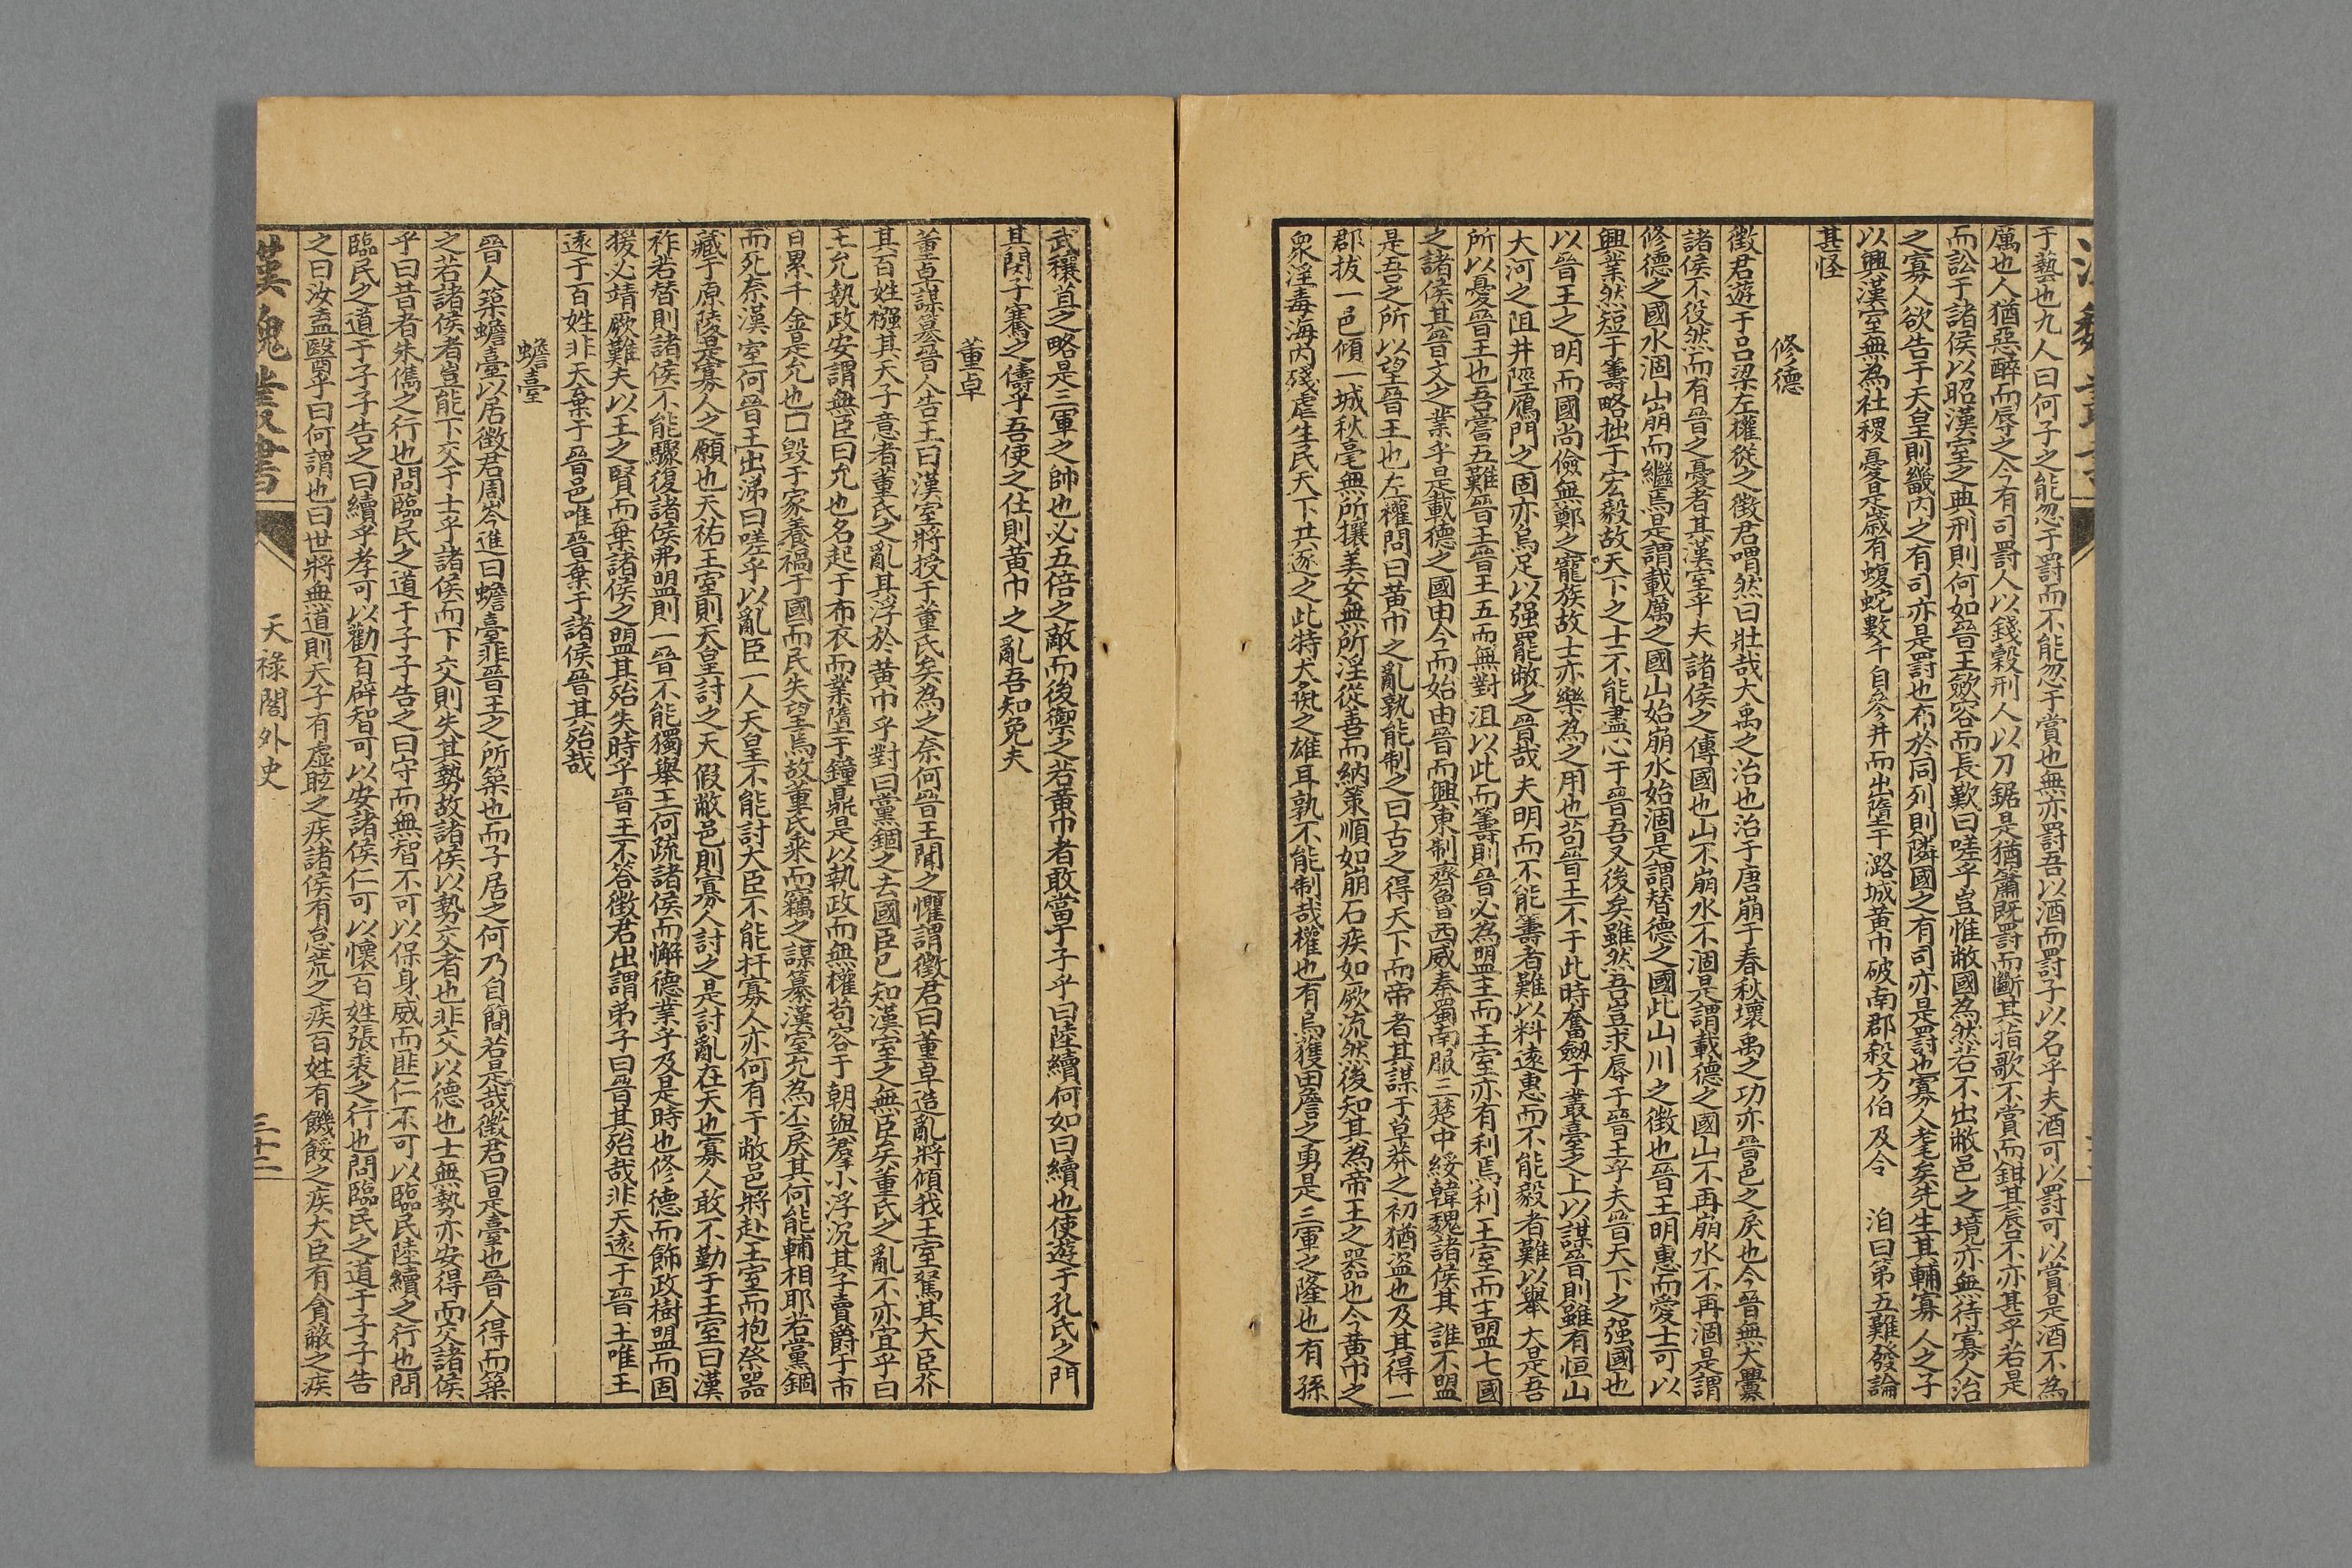 于藝也九人曰何子之能忽于罰而不能忽于賞也無亦罰吾以酒而罰子以名乎夫酒可以罰可以賞是酒不為
厲也人猶惡醉而辱之今有司罰人以錢穀刑人以刀鋸是猶簫既罰而斷其指歌不賞而鉗其唇不亦甚乎若是
而訟于諸侯以昭漢室之典刑則何如晉王斂容而長歎曰嗟乎豈惟敝國為然若不出敝邑之境亦無待寡人治
之寡人欲告于天皇則畿內之有司亦是罰也布於同列則隣國之有司亦是罰也寡人耄矣先生其輔寡人之子
以興漢室無為社稷憂是歲有蝮蛇數千自參井而出墮于潞城黃巾破南郡殺方伯及令 洎曰第五難發論
甚怪
修德
徵君遊于呂梁左權從之徵君喟然曰壯哉大禹之治也治于唐崩于春秋壞禹之功亦晉邑之戾也今晉無大釁
諸侯不役然而有晉之憂者其漢室乎夫諸侯之傳國也山不崩水不涸是謂載德之國山不再崩水不再涸是謂
修德之國水涸山崩而繼焉是謂載厲之國山始崩水始涸是謂替德之國此山川之徵也晉王明惠而愛士可以
興業然短于籌略拙于宏毅故天下之士不能盡心于晉吾又後矣雖然吾豈求辱于晉王乎夫晉天下之强國也
以晉王之明而國尚儉無鄭之寵族故士亦樂為之用也苟晉王不于此時奮劒于叢臺之上以謀晉則雖有恒山
大河之阻井陘鴈門之固亦烏足以强罷敝之晉哉夫明而不能籌者難以料遠惠而不能毅者難以舉大是吾
所以憂晉王也吾嘗五難晉王晉王五而無對沮以此而籌則晉必為盟主而王室亦有利焉利王室而主盟七國
之諸侯其晉文之業乎是載德之國由今而始由晉而興東制齊魯西威秦蜀南服三楚中綏韓魏諸侯其誰不盟
是吾之所以望晉王也左權問曰黃巾之亂孰能制之曰古之得天下而帝者其謀于草莽之初猶盜也及其得一
郡拔一邑傾一城秋毫無所攘美女無所淫從善而納策順如崩石疾如厥流然後知其為帝王之器也今黃巾之
衆淫毒海內殘虐生民天下共逐之此特犬彘之雄耳孰不能制哉權也有烏獲田詹之勇是三軍之隆也有孫
武穰苴之略是三軍之帥也必五倍之敵而後禦之若黃巾者敢當于子乎曰陸續何如曰續也使遊于孔氏之門
其閔子騫之儔乎吾使之仕則黃巾之亂吾知免夫
董卓
董卓謀纂晉人告王曰漢室將授于董氏矣為之奈何晉王聞之懼謂徵君曰董卓造亂將傾我王室駕其大臣芥
其百姓襁其天子意者董氏之亂其浮於黃巾乎對曰黨錮之去國臣已知漢室之無臣矣董氏之亂不亦宜乎曰
王允執政安謂無臣曰允也名起于布衣而業墮于鐘鼎是以執政而無權苟容于朝與羣小浮沉其子賣爵于市
日累千金是允也口毀于家養禍于國而民失望焉故董氏乘而竊之謀纂漢室允為丕戾其何能輔相耶若黨錮
而死奈漢室何晉王出涕曰嗟乎以亂臣一人天皇不能討大臣不能扞寡人亦何有于敝邑將赴王室而抱祭器
藏于原陵是寡人之願也天祐王室則天皇討之天假敝邑則寡人討之是討亂在天也寡人敢不勤于王室曰漢
祚若替則諸侯不能驟復諸侯弗盟則一晉不能獨舉王何疏諸侯而懈德業乎及是時也修德而飾政樹盟而固
援必靖厥難夫以王之賢而棄諸侯之盟其殆失時乎晉王不答徵君出謂弟子曰晉其殆哉非天遠于晉王唯王
遠于百姓非天棄于晉邑唯晉棄于諸侯晉其殆哉
蟾臺
晉人築蟾臺以居徵君周岑進曰蟾臺非晉王之所築也而子居之何乃自簡若是哉徵君曰是臺也晉人得而築
之若諸侯者豈能下交于士乎諸侯而下交則失其勢故諸侯以勢交者也非交以德也士無勢亦安得而交諸侯
乎曰昔者朱儁之行也問臨民之道于子子告之曰守而無智不可以保身威而匪仁不可以臨民陸續之行也問
臨民之道于子子告之曰續乎孝可以勸百辟智可以安諸侯仁可以懷百姓張表之行也問臨民之道于子子告
之曰汝盍醫乎曰何謂也曰世將無道則天子有虛眩之疾諸侯有怠荒之疾百姓有饑餒之疾大臣有貪敝之疾
漢魏叢書
天祿閣外史
三十二